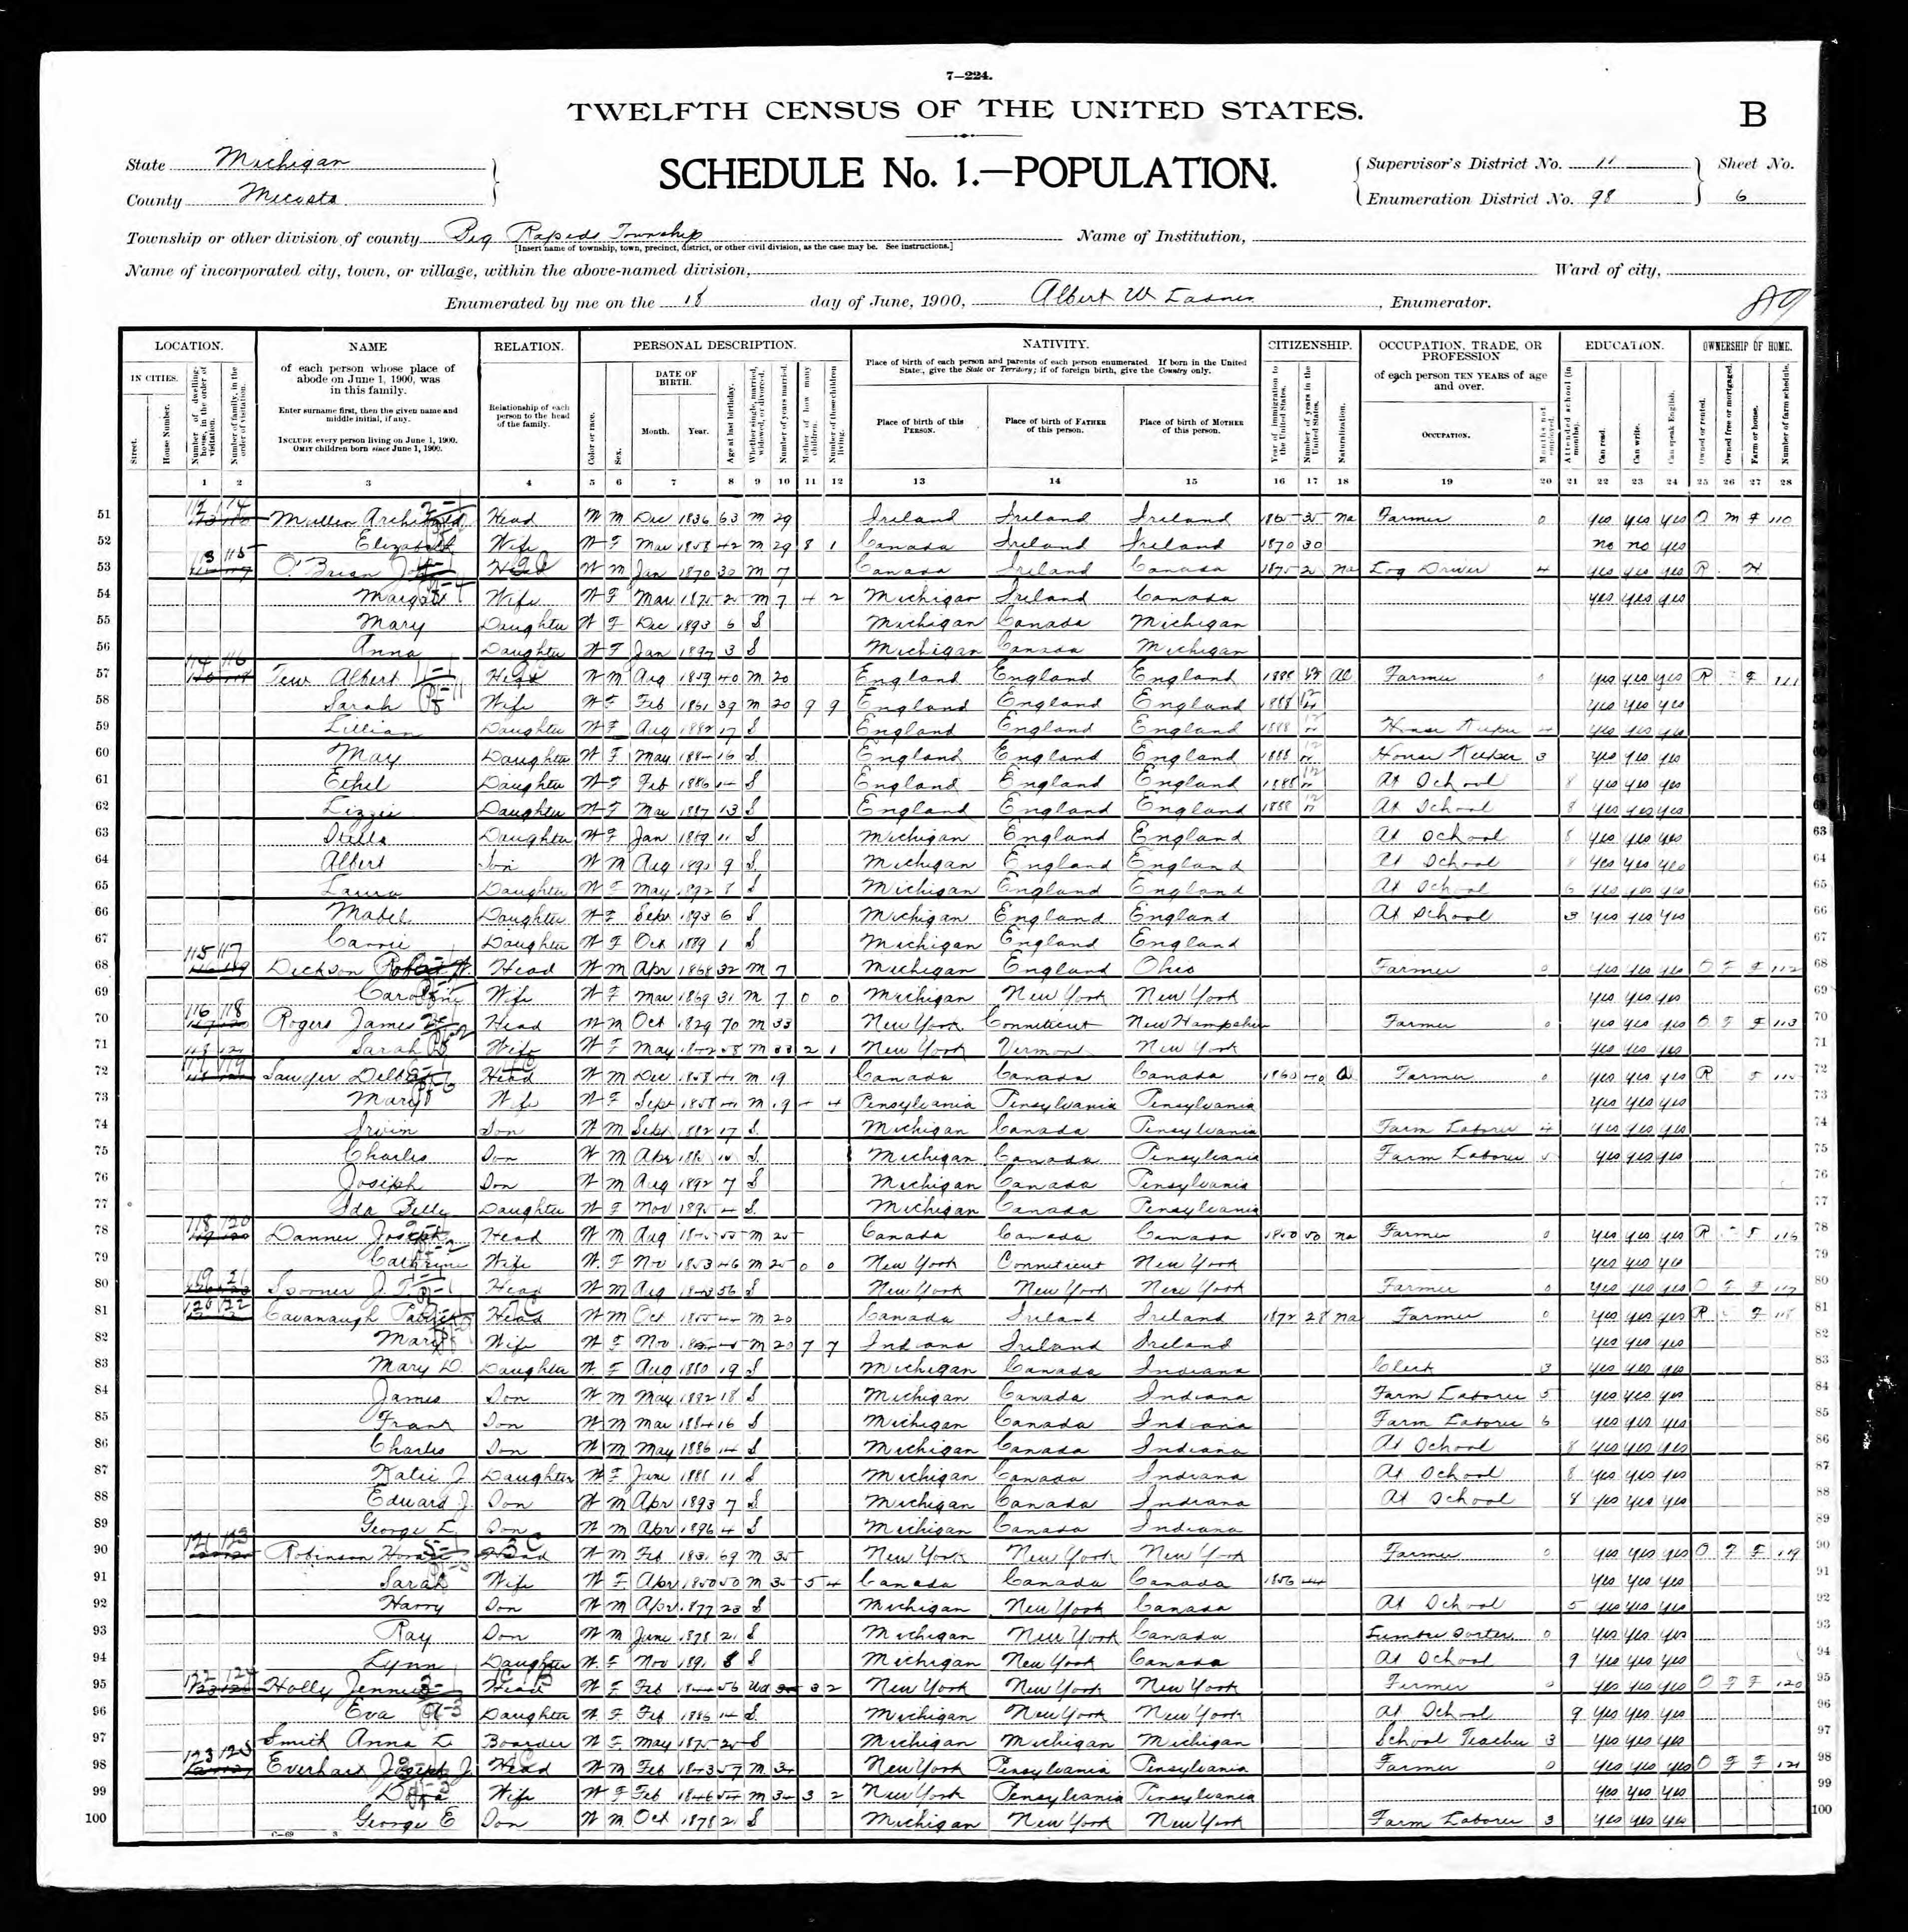 7—224.
TWELFTH CENSUS OF THE UNITED STATES.
B
State Michigan
County Mecosta
SCHEDULE No. 1.—POPULATION.
Supervisor's District No. 11 Sheet No.
Enumeration District No. 98 6
Township or other division of county Big Rapids Township Name of Institution,
[Insert name of township, town, precinct, district, or other civil division, as the case may be. See instructions.]
Name of incorporated city, town, or village, within the above-named division, Ward of city,
Enumerated by me on the 18 day of June, 1900, Albert W , Enumerator.
LOCATION. NAME RELATION. PERSONAL DESCRIPTION. NATIVITY. CITIZENSHIP. OCCUPATION, TRADE, OR PROFESSION EDUCATION. OWNERSHIP OF HOME.
IN CITIES. Street. House Number. Number of dwelling-house, in the order of visitation. Number of family, in the order of visitation.
of each person whose place of abode on June 1, 1900, was in this family.
Enter surname first, then the given name and middle initial, if any.
INCLUDE every person living on June 1, 1900. OMIT children born since June 1, 1900.
Relationship of each person to the head of the family.
Color or race. Sex. DATE OF BIRTH. Month. Year. Age at last birthday. Whether single, married, widowed, or divorced. Number of years married. Mother of how many children. Number of these children living.
Place of birth of each person and parents of each person enumerated. If born in the United States, give the State or Territory; if of foreign birth, give the Country only.
Place of birth of this PERSON. Place of birth of FATHER of this person. Place of birth of MOTHER of this person.
Year of immigration to the United States. Number of years in the United States. Naturalization.
of each person TEN YEARS of age and over. OCCUPATION. Months not employed.
Attended school (in months). Can read. Can write. Can speak English.
Owned or rented. Owned free or mortgaged. Farm or house. Number of farm schedule.
1 2 3 4 5 6 7 8 9 10 11 12 13 14 15 16 17 18 19 20 21 22 23 24 25 26 27 28
51 Mullen Archibald Head W M Dec 1836 63 M 29 Ireland Ireland Ireland 1865 35 na Farmer 0 yes yes yes O M F 110
52 Elizabeth Wife W F Mar 1858 42 M 29 8 1 Canada Ireland Ireland 1870 30 no no yes
53 113 115 O'Brian Head W M Jan 1870 30 M 7 Canada Ireland Canada 1875 na Log Driver 4 yes yes yes R H
54 Wife W F Mar 1875 25 M 7 4 2 Michigan Ireland Canada yes yes yes
55 Mary Daughter W F Dec 1893 6 S Michigan Canada Michigan
56 Anna Daughter W F Jan 1897 3 S Michigan Canada Michigan
57 114 116 Tew Albert Head W M Aug 1859 40 M 20 England England England 1888 12 Al Farmer 0 yes yes yes R F 111
58 Sarah Wife W F Feb 1861 39 M 20 9 9 England England England 1888 12 yes yes yes
59 Lillian Daughter W F Aug 1882 17 S England England England 1888 12 House Keeper 4 yes yes yes
60 May Daughter W F May 1884 16 S England England England 1888 12 House Keeper 3 yes yes yes
61 Ethel Daughter W F Feb 1886 14 S England England England 1888 12 At School 8 yes yes yes
62 Lizzie Daughter W F Mar 1887 13 S England England England 1888 12 At School 8 yes yes yes
63 Stella Daughter W F Jan 1889 11 S Michigan England England At School 8 yes yes yes
64 Albert Son W M Aug 1890 9 S Michigan England England At School 8 yes yes yes
65 Laura Daughter W F May 1892 8 S Michigan England England At School 6 yes yes yes
66 Mabel Daughter W F Sept 1893 6 S Michigan England England At School 3 yes yes yes
67 Carrie Daughter W F Oct 1889 1 S Michigan England England
68 115 117 Dickson Robert W. Head W M Apr 1868 32 M 7 Michigan England Ohio Farmer 0 yes yes yes O F F 112
69 Caroline Wife W F Mar 1869 31 M 7 0 0 Michigan New York New York yes yes yes
70 116 118 Rogers James Head W M Oct 1829 70 M 33 New York Conneticut New Hampshire Farmer 0 yes yes yes O F F 113
71 Sarah Wife W F May 1842 58 M 33 2 1 New York Vermont New York yes yes yes
72 117 119 Sawyer Head W M Dec 1858 41 M 19 Canada Canada Canada 1860 40 Farmer 0 yes yes yes R F
73 Mary Wife W F Sept 1858 41 M 19 4 4 Pensylvania Pensylvania Pensylvania yes yes yes
74 Irvin Son W M Sept 1882 17 S Michigan Canada Pensylvania Farm Laborer 4 yes yes yes
75 Charles Son W M Apr S Michigan Canada Pensylvania Farm Laborer yes yes yes
76 Joseph Son W M Aug 1892 7 S Michigan Canada Pensylvania
77 Ida Belle Daughter W F Nov 1895 4 S Michigan Canada Pensylvania
78 118 120 Danner Joseph Head W M Aug 55 M 25 Canada Canada Canada 1850 50 na Farmer 0 yes yes yes R F 116
79 Cathrine Wife W F Nov 1853 46 M 25 0 0 New York Conneticut New York yes yes yes
80 119 121 Spooner J. T. Head W M Aug 1843 56 New York New York New York Farmer 0 yes yes yes O F F 117
81 120 122 Cavanaugh Patrick Head W M Oct 1855 44 M 20 Canada Ireland Ireland 1872 28 na Farmer 0 yes yes yes R F 118
82 Mary Wife W F Nov 45 M 20 7 7 Indiana Ireland Ireland yes yes yes
83 Mary D. Daughter W F Aug 1880 19 S Michigan Canada Indiana Clerk 3 yes yes yes
84 James Son W M May 1882 18 S Michigan Canada Indiana Farm Laborer 5 yes yes yes
85 Frank Son W M Mar 1884 16 S Michigan Canada Indiana Farm Laborer 6 yes yes yes
86 Charles Son W M May 1886 14 S Michigan Canada Indiana At School 8 yes yes yes
87 Katie J. Daughter W F June 1888 11 S Michigan Canada Indiana At School 8 yes yes yes
88 Edward J. Son W M Apr 1893 7 S Michigan Canada Indiana At School 8 yes yes yes
89 George L Son W M Apr 1896 4 S Michigan Canada Indiana
90 121 123 Robinson Horace Head W M Feb 1831 69 M 35 New York New York New York Farmer 0 yes yes yes O F F 119
91 Sarah Wife W F Apr 1850 50 M 35 5 4 Canada Canada Canada 1856 44 yes yes yes
92 Harry Son W M Apr 1877 23 S Michigan New York Canada At School 5 yes yes yes
93 Ray Son W M June 1878 21 S Michigan New York Canada Lumber Sorter 0 yes yes yes
94 Lynn Daughter W F Nov 1891 8 S Michigan New York Canada At School 9 yes yes yes
95 122 124 Holly Jennie Head W F Feb 1844 56 Wd 3 2 New York New York New York Farmer 0 yes yes yes O F F 120
96 Eva Daughter W F Feb 1886 14 S Michigan New York New York At School 9 yes yes yes
97 Smith Anna L Boarder W F May 1875 25 S Michigan Michigan Michigan School Teacher 3 yes yes yes
98 123 125 Everhart Joseph J. Head W M Feb 1843 57 M 34 New York Pensylvania Pensylvania Farmer 0 yes yes yes O F F 121
99 Wife W F Feb 1846 54 M 34 3 2 New York Pensylvania Pensylvania yes yes yes
100 George E Son W M Oct 1878 21 S Michigan New York New York Farm Laborer 3 yes yes yes